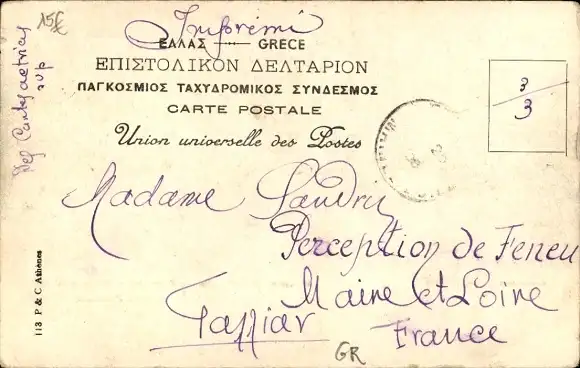 15£
Imprimé
ΕΛΛΑΣ — GRECE
ΕΠΙΣΤΟΛΙΚΟΝ ΔΕΛΤΑΡΙΟΝ
ΠΑΓΚΟΣΜΙΟΣ ΤΑΧΥΔΡΟΜΙΚΟΣ ΣΥΝΔΕΣΜΟΣ
CARTE POSTALE
Union universelle des Postes
3
3
Madame Landry
Perception de Feneu
Maine et Loire
Γαλλίαν France
GR
113 P & C Athènes